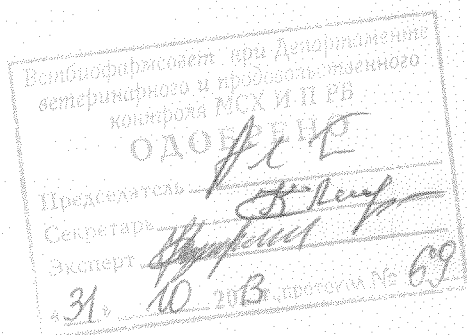 Ветбиофармсовет при Департаменте
ветеринарного и продовольственного
контроля МСХ И П РБ
ОДОБРЕНО
Председатель
Секретарь
Эксперт
«31» 10 2013 г., протокол № 69